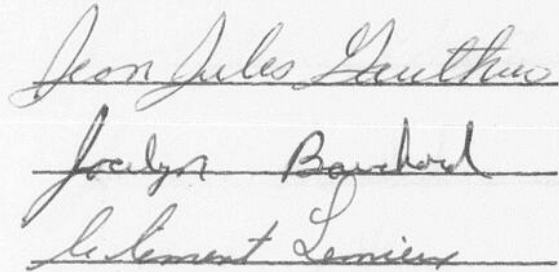 Jean Jules Gauthier
Jocelyn Bouchard
Clément Lemieux